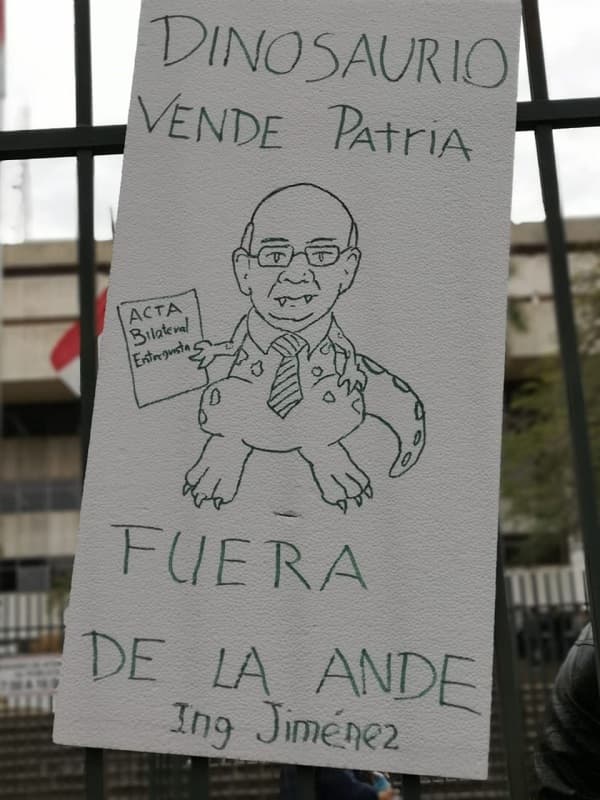 DINOSAURIO
VENDE Patria
ACTA
Bilateral
Entreguista
FUERA
DE LA ANDE
Ing Jiménez